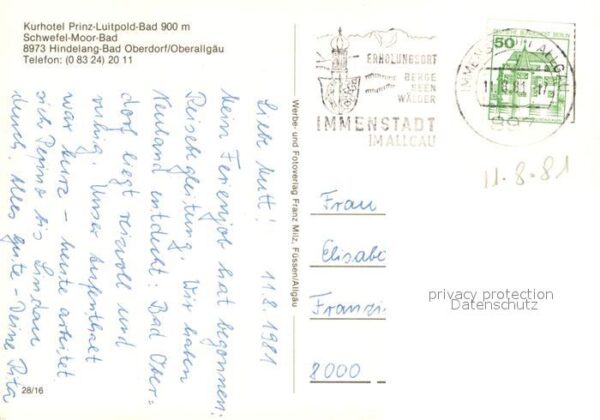 Kurhotel Prinz-Luitpold-Bad 900 m
Schwefel-Moor-Bad
8973 Hindelang-Bad Oberdorf/Oberallgäu
Telefon: (0 83 24) 20 11
Liebe Mutti! 11.8.1981
Mein Ferienjob hat begonnen:
Reisebegleitung. Wir haben
Neuland entdeckt: Bad Ober-
dorf liegt reizvoll und
ruhig. Unser Aufenthalt
war kurz - heute arbeitet
sich Peppino bis Lindau
durch. Alles Gute - Deine Rita
28/16
Werbe- und Fotoverlag Franz Milz, Füssen/Allgäu
ERHOLUNGSORT
BERGE
SEEN
WÄLDER
IMMENSTADT
IM ALLGÄU
DEUTSCHE BUNDESPOST BERLIN
50
IMMENSTADT IM ALLGÄU
897
11-8-81
Frau
Elisabe
Franzi
8000
privacy protection
Datenschutz